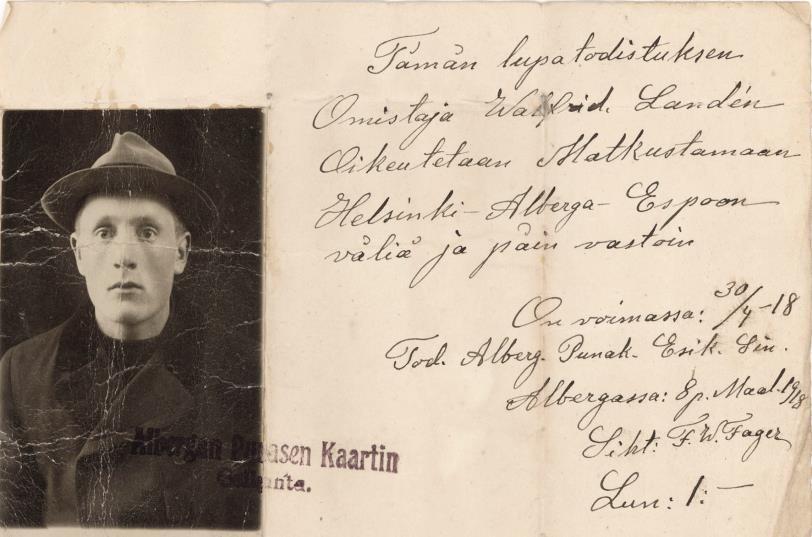 Tämän lupatodistuksen
Omistaja Walfrid. Landén
Oikeutetaan Matkustamaan
Helsinki-Alberga-Espoon
väliä ja päin vastoin
On voimassa: 30/4-18
Tod. Alberg. Punak. Esik.
Albergassa: 8 p. Maal. 1918
Siht: F.W. Fager
Lun: 1:-
Albergan Punasen Kaartin